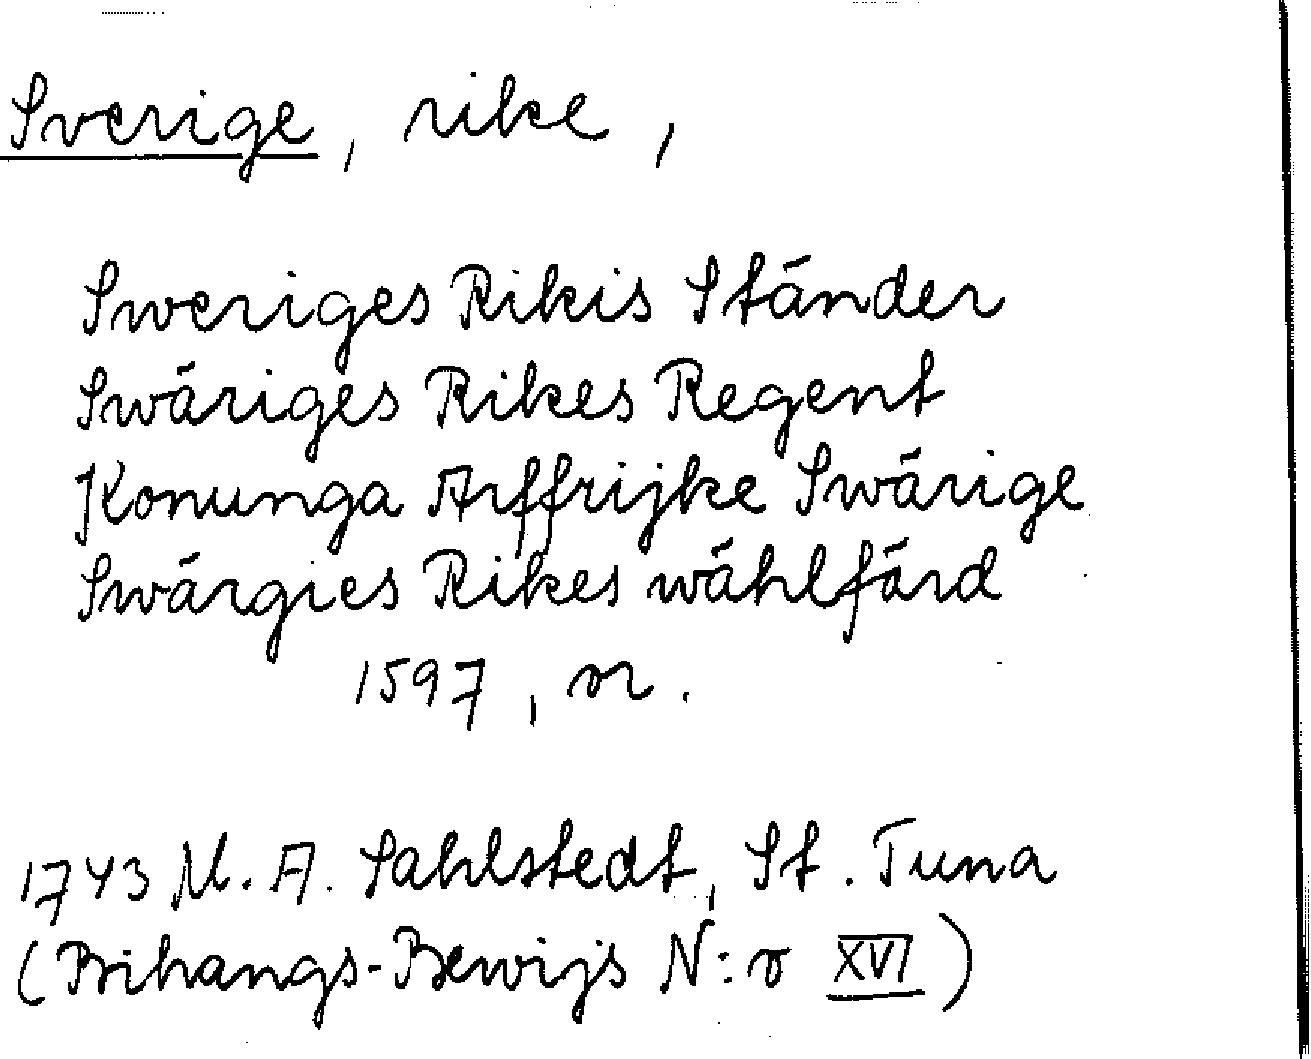 Sverige, rike,
Sweriges Rikis Ständer
Swäriges Rikes Regent
Konunga Arffrijke Swärige
Swärgies Rikes wählfärd
1597, or.
1743 M. A. Sahlstedt, St. Tuna
(Bihangs-Bewijs N:o XVI)